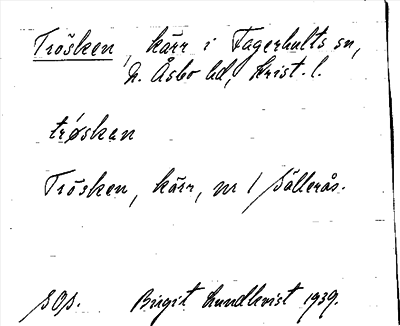 Trösken, kärr i Fagerhults sn,
N. Åsbo hd, Krist. l.
trøskan
Trösken, kärr, nr 1 Sällerås.
SOS. Birgit Lundkvist 1939.